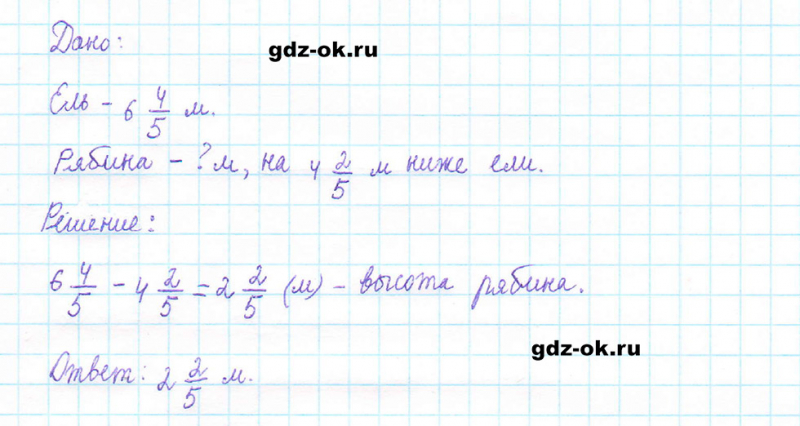 Дано:
gdz-ok.ru
Ель - 6 4/5 м.
Рябина - ? м, на 4 2/5 м ниже ели.
Решение:
6 4/5 - 4 2/5 = 2 2/5 (м) - высота рябина.
gdz-ok.ru
Ответ: 2 2/5 м.